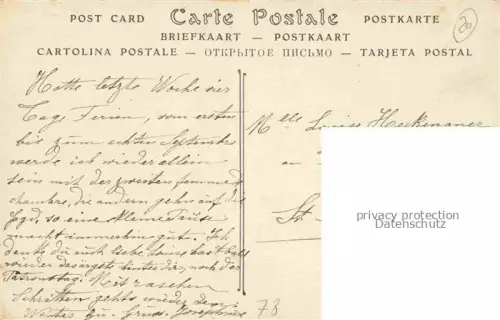 POST CARD Carte Postale POSTKARTE
BRIEFKAART — POSTKAART
CARTOLINA POSTALE — ОТКРЫТОЕ ПИСЬМО — TARJETA POSTAL
20
Hatte letzte Woche vier
Tage Ferien, vom ersten
bis zum achten Septembre
werde ich wieder allein
sein mit der zweiten femme d
chambre, die andern gehn auf die
Jagd, so eine kleine Pause
macht immerhin gut. Ich
denke du auch liebe Louise hast bald
wieder das ärgste hinter dir, nach der
Patronstag. Mit raschen
Schritten gehts wieder dem
Winter zu. Gruss Josephine
Melle Louise Heckenauer
an
St.
privacy protection
Datenschutz
78